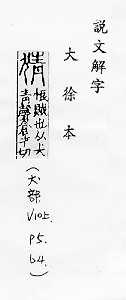 說文解字
大徐本
猜
恨賊也从犬
青聲倉才切
(犬部
V10上.
P5.
b4.
)